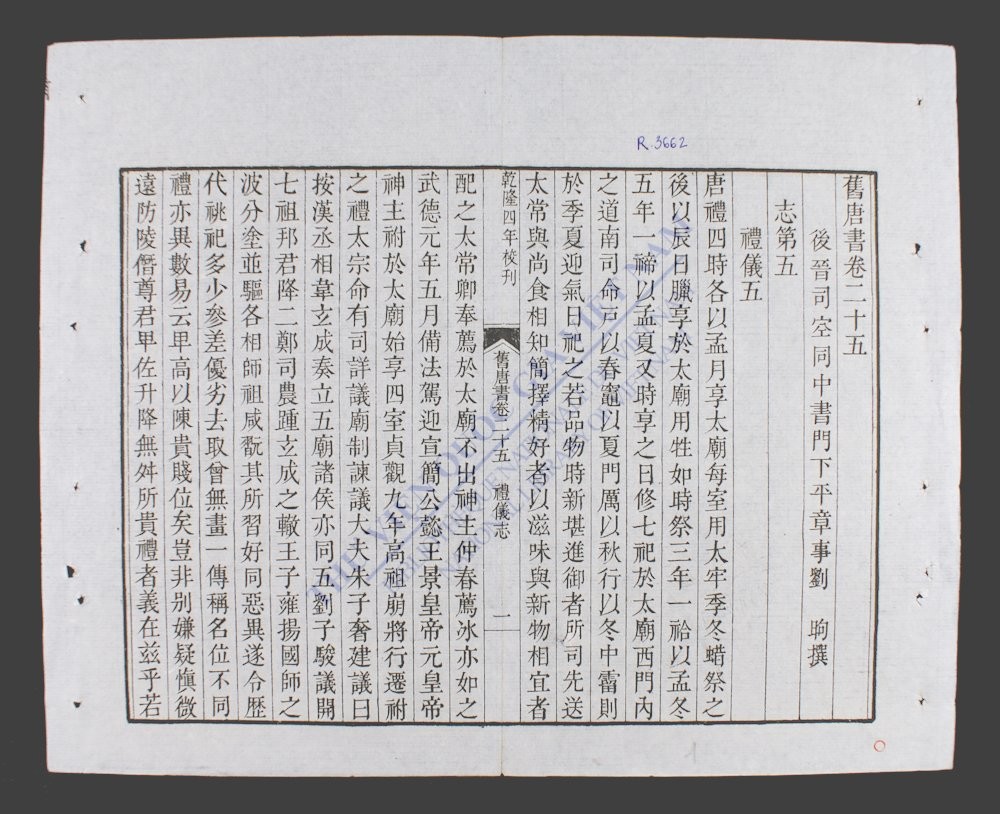 R.3662
舊唐書卷二十五
後晉司空同中書門下平章事劉　昫撰
志第五
禮儀五
唐禮四時各以孟月享太廟每室用太牢季冬蜡祭之
後以辰日臘享於太廟用牲如時祭三年一祫以孟冬
五年一禘以孟夏又時享之日修七祀於太廟西門內
之道南司命戶以春竈以夏門厲以秋行以冬中霤則
於季夏迎氣日祀之若品物時新堪進御者所司先送
太常與尚食相知簡擇精好者以滋味與新物相宜者
乾隆四年校刊
舊唐書卷二十五　禮儀志
一
配之太常卿奉薦於太廟不出神主仲春薦冰亦如之
武德元年五月備法駕迎宣簡公懿王景皇帝元皇帝
神主祔於太廟始享四室貞觀九年高祖崩將行遷祔
之禮太宗命有司詳議廟制諫議大夫朱子奢建議曰
按漢丞相韋玄成奏立五廟諸侯亦同五劉子駿議開
七祖邦君降二鄭司農踵玄成之轍王子雍揚國師之
波分塗並驅各相師祖咸翫其所習好同惡異遂令歷
代祧祀多少參差優劣去取曾無畫一傳稱名位不同
禮亦異數易云卑高以陳貴賤位矣豈非別嫌疑愼微
遠防陵僭尊君卑佐升降無舛所貴禮者義在茲乎若